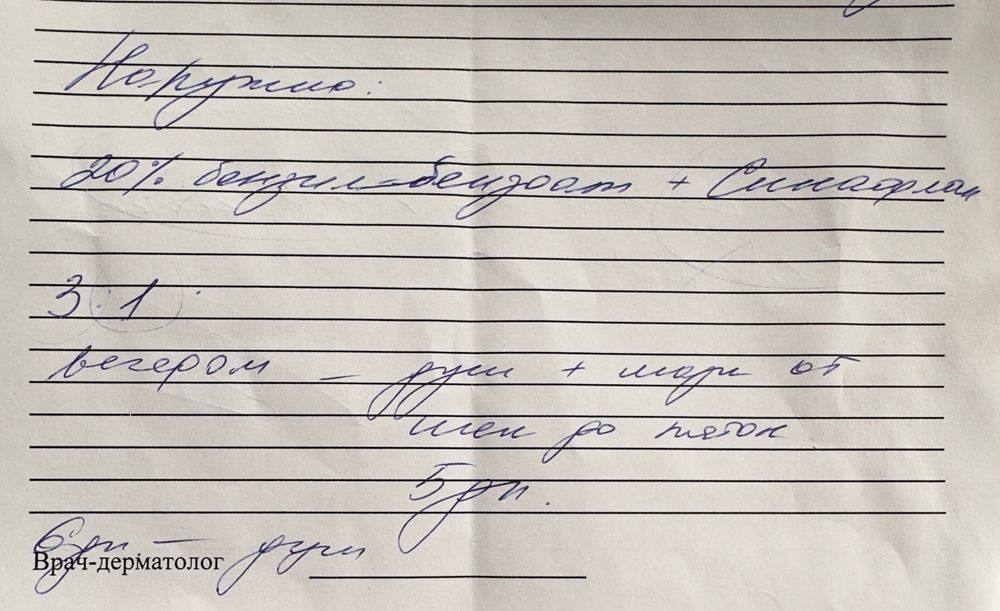 Наружно:
20% бензил-бензоат + Синафлан
3:1
вечером – душ + мазь от
шеи до пяток
5 дн.
6 дн – душ
Врач-дерматолог